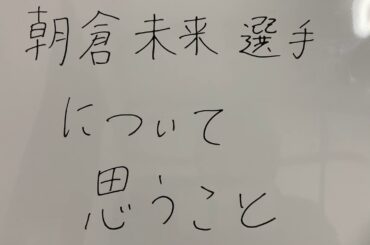 朝倉未来選手
について
思うこと